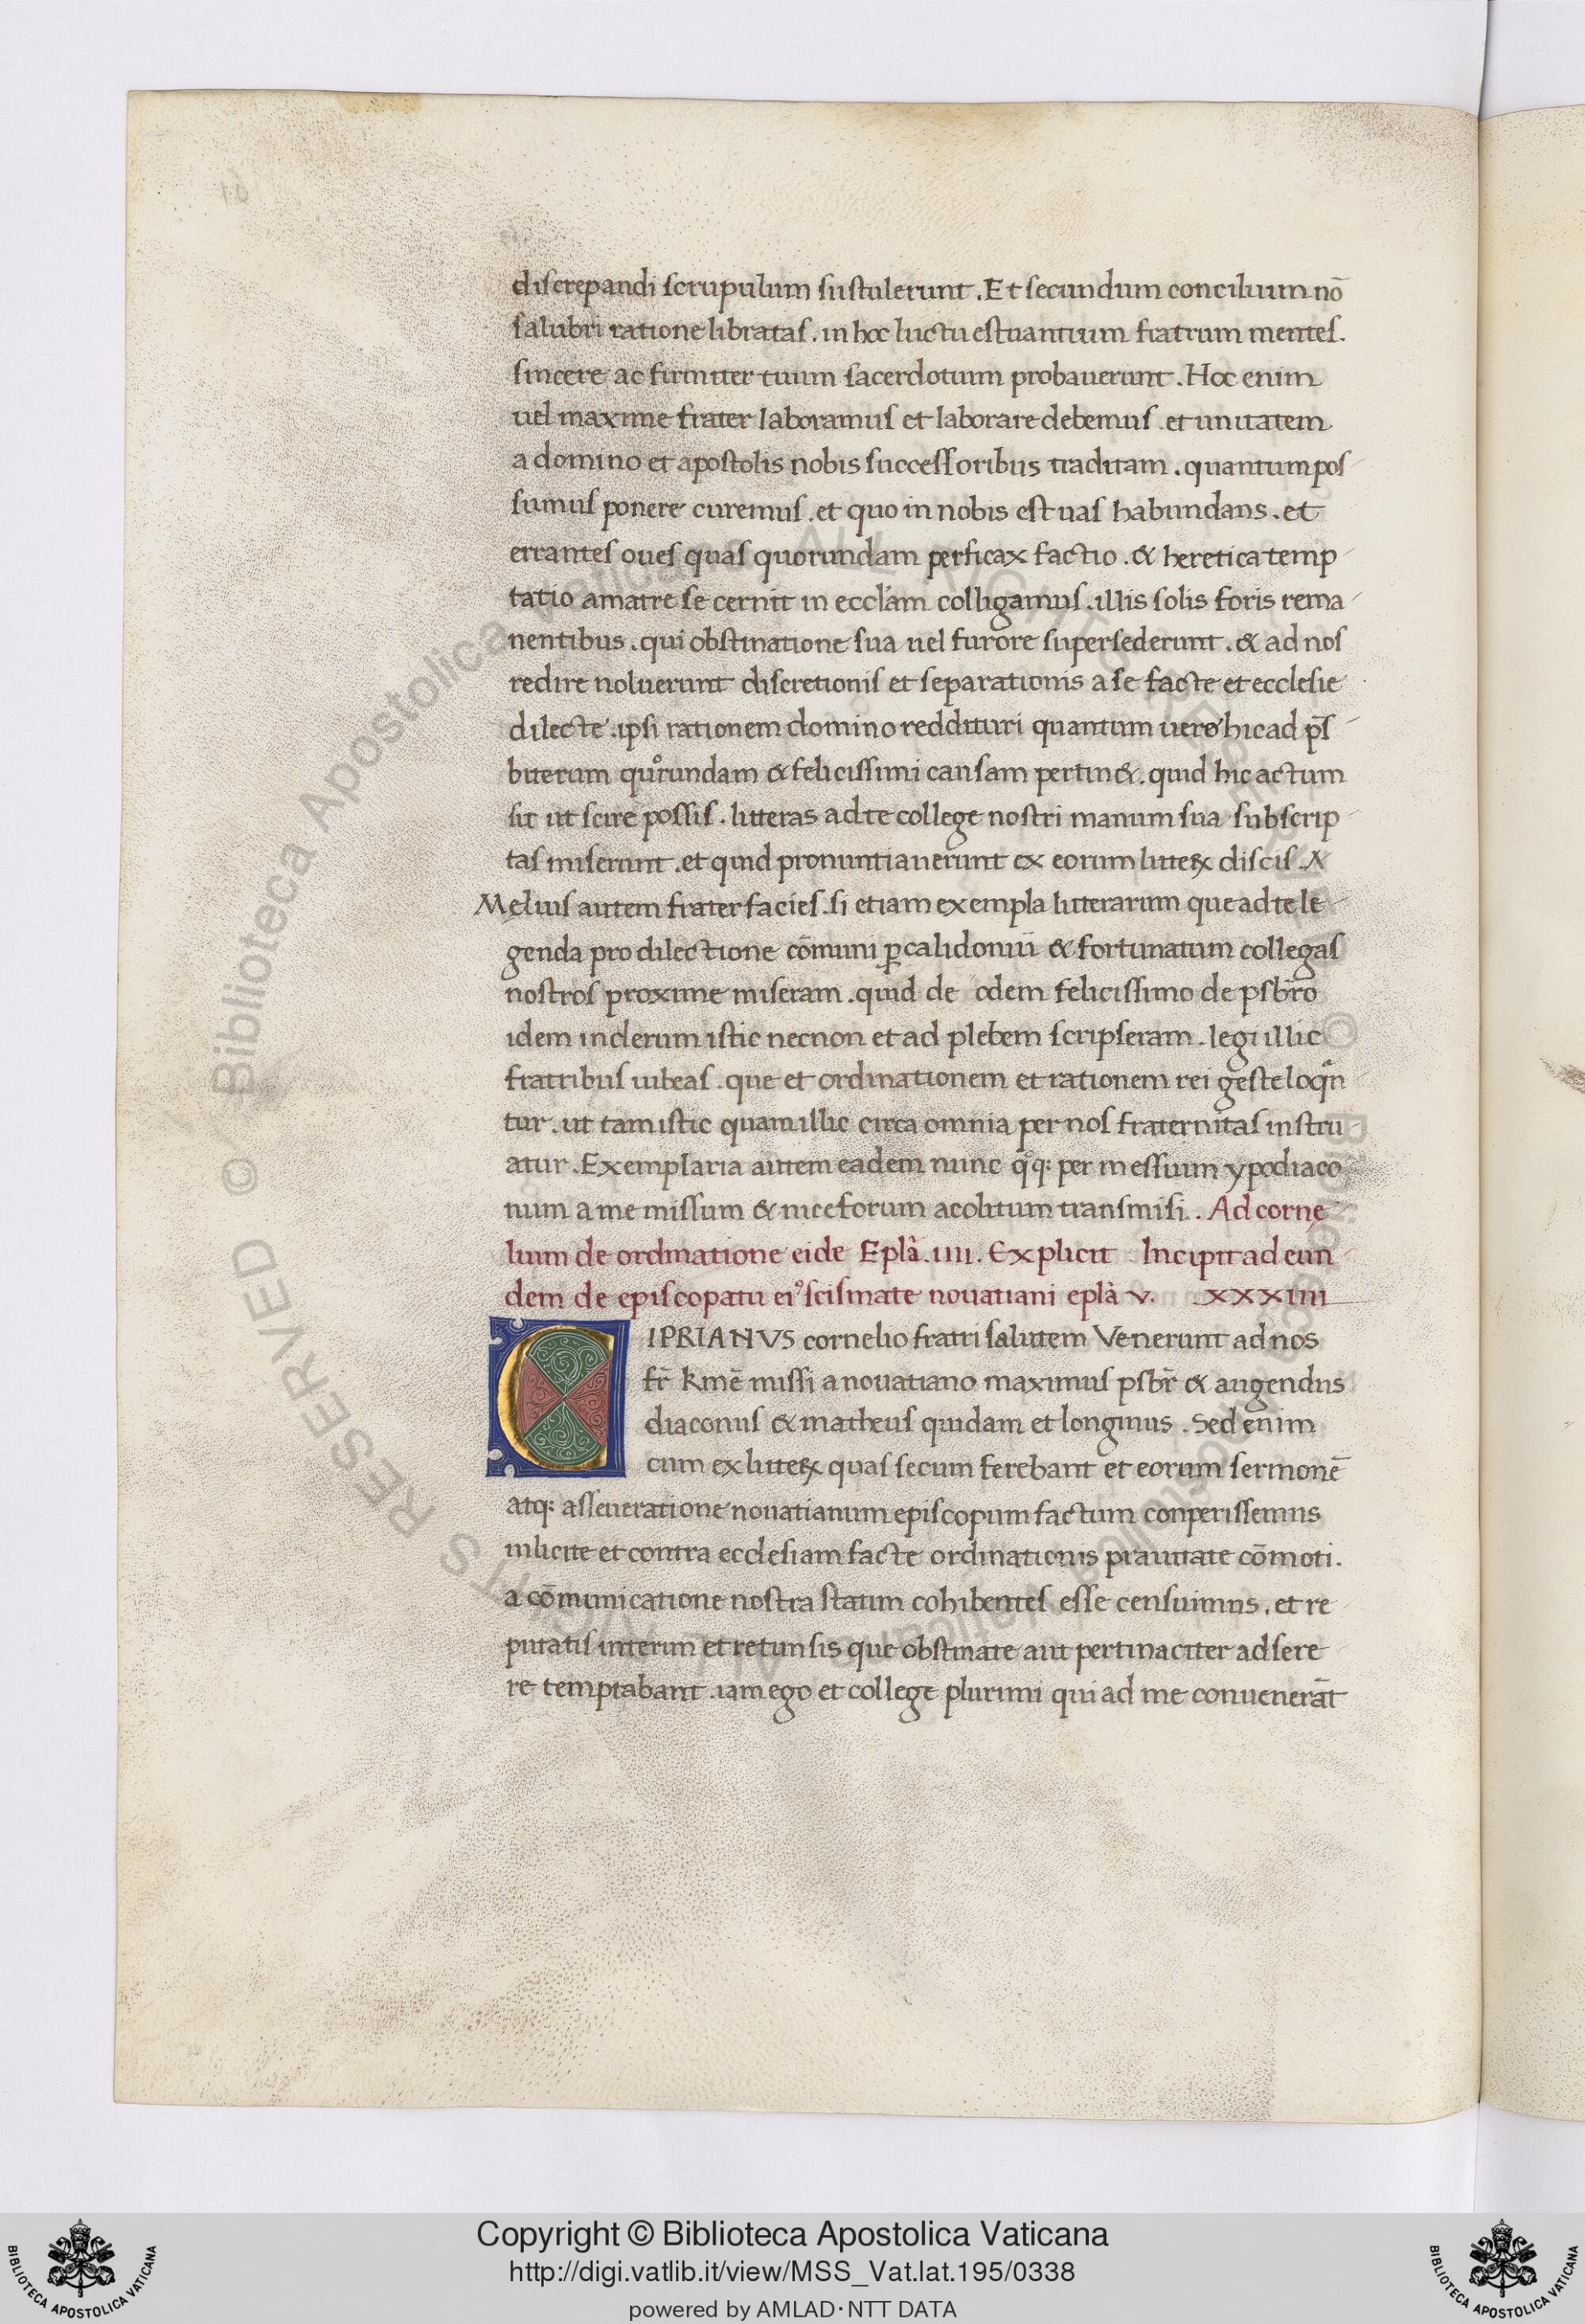 discrepandi scrupulum sustulerunt. Et secundum conciluum nō
salubri ratione libratas. in hoc luctu estuantium fratrum mentes.
sincere ac firmiter tuum sacerdotium probauerunt. Hoc enim
uel maxime frater laboramus et laborare debemus. et unitatem
a domino et apostolis nobis successoribus traditam. quantum pos
sumus ponere curemus. et quo in nobis est uas habundans. et
errantes oues quas quorundam perficax factio. & heretica temp
tatio amatre se cernit in eccl'am colligamus. illis solis foris rema
nentibus. qui obstinatione sua uel furore supersederunt. & ad nos
redire noluerunt discretionis et separationis a se facte et ecclesie
dilecte. ipsi rationem domino reddituri quantum uero hic ad p̄s
biterum quorundam & felicissimi causam pertin&. quid hic actum
sit ut scire possis. litteras ad te college nostri manum sua subscrip
tas miserunt. et quid pronuntiauerunt ex eorum litteꝝ discis.
Melius autem frater facies. si etiam exempla litterarum que ad te le
genda pro dilectione cōmuni ꝑ calidoniū & fortunatum collegas
nostros proxime miseram. quid de odem felicissimo de psbr̄o
idem inclerum istic necnon et ad plebem scripseram. legi illic
fratribus iubeas. que et ordinationem et rationem rei geste loqūn
tur. ut tam istic quam illic circa omnia per nos fraternitas instru
atur. Exemplaria autem eadem nunc qͦq: per messium ypodiaco
num a me missum & niceforum acolitum transmisi. Ad corne
lium de ordinatione eide Epl'a. IIII. Explicit Incipit ad eun
dem de episcopatu ei' scismate nouatiani epl'a v. XXXIIII
CIPRIANVS cornelio fratri salutem Venerunt ad nos
fr̄ kmē missi a nouatiano maximus psbr̄ & augendus
diaconus & matheus quidam et longinus. Sed enim
cum ex litteꝝ quas secum ferebant et eorum sermonē
atq: asseueratione nouatianum episcopum factum conperissemus
inlicite et contra ecclesiam facte ordinationis prauitate cōmoti.
a cōmunicatione nostra statim cohibentes esse censuimus. et re
putatis interim et retunsis que obstinate aut pertinaciter adsere
re temptabant. iam ego et college plurimi qui ad me conuenerāt
Copyright © Biblioteca Apostolica Vaticana
http://digi.vatlib.it/view/MSS_Vat.lat.195/0338
powered by AMLAD·NTT DATA